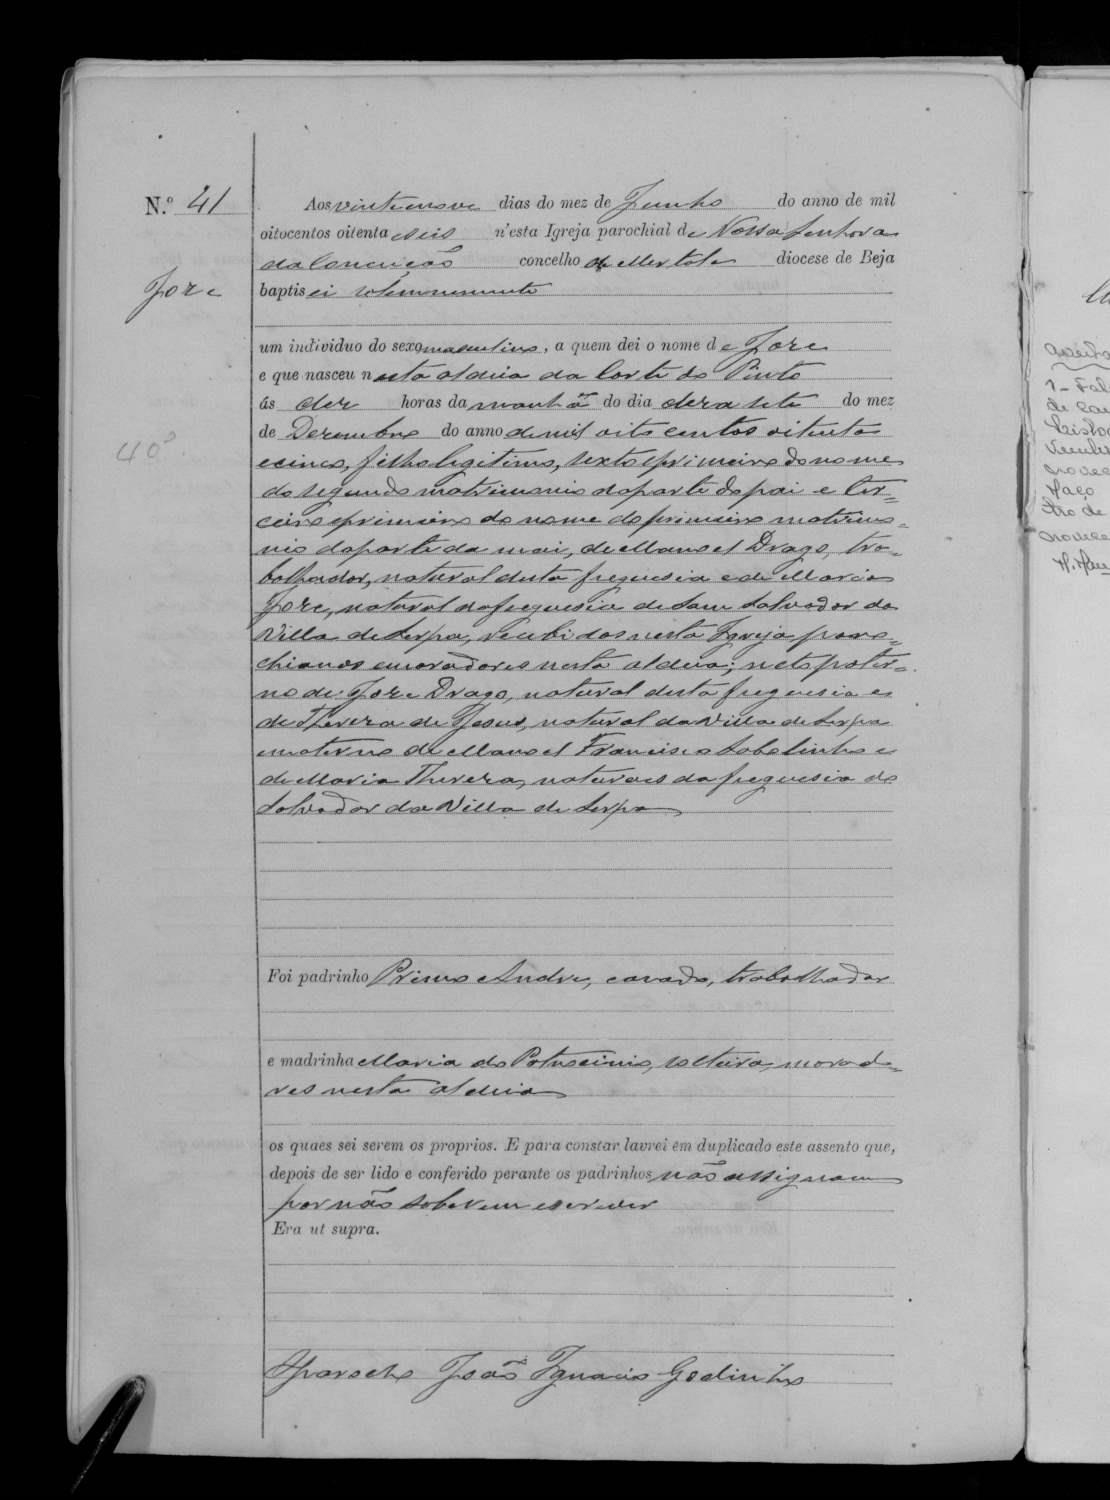 N.º 41
José
40º
Aos vinte enove dias do mez de Junho do anno de mil
oitocentos oitenta eseis n'esta Igreja parochial de Nossa Senhora
da Conceição concelho de Mertola diocese de Beja
baptisei solemnemente
um individuo do sexo masculino, a quem dei o nome de José
e que nasceu nesta aldeia da Corte do Pinto
ás dez horas da manhã do dia dezasete do mez
de Dezembro do anno de mil oito centos oitenta
ecinco, filho legitimo, sexto eprimeiro do nome
do segundo matrimonio daparte do pai e ter=
ceiro eprimeiro do nome do primeiro matrimo=
nio daparte da mai, de Manoel Drago, tra=
balhador, natural desta freguesia e de Maria
José, natural da freguesia de Sam Salvador da
Villa de Serpa, recebidos nesta Igreja, paro=
chianos emoradores nesta aldeia; neto pater=
no de José Drago, natural desta freguesia e
de Thereza de Jesus, natural da Villa de Serpa
ematerno de Manoel Francisco e
de Maria Thereza, naturaes da freguesia do
Salvador da Villa de Serpa
Foi padrinho Primo Andre, casado, trabalhador
e madrinha Maria do Patrocinio, solteira, morado=
res nesta aldeia
os quaes sei serem os proprios. E para constar lavrei em duplicado este assento que,
depois de ser lido e conferido perante os padrinhos não assignam
por não saberem escrever
Era ut supra.
O parocho João Ignacio Godinho